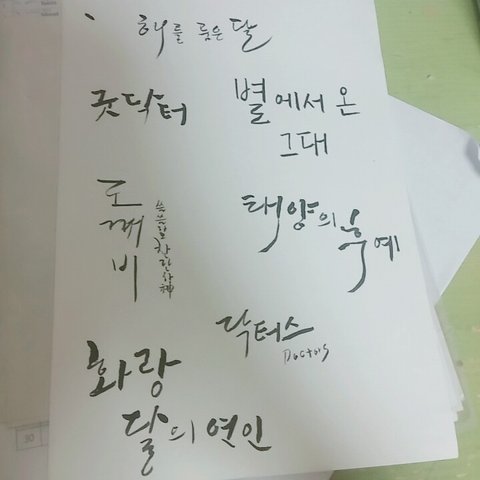 해를 품은 달
굿닥터
별에서 온
그대
도깨비
쓸쓸하고 찬란하神
태양의 후예
닥터스
Doctors
화랑
달의 연인